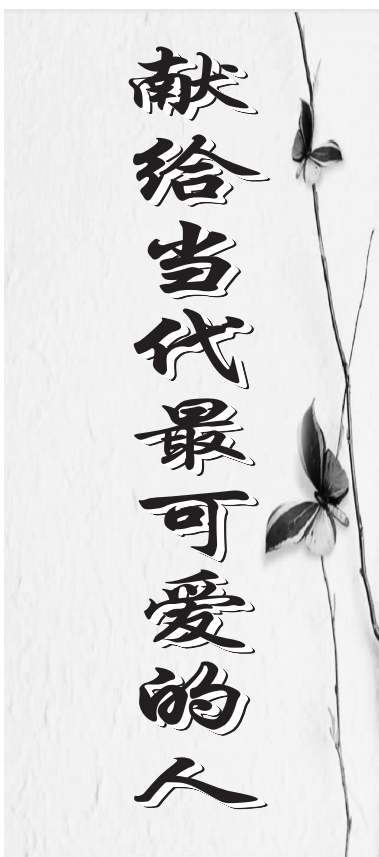 献给当代最可爱的人